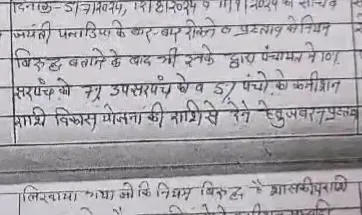 दिनांक- 5/7/2024, 12/8/2024 व 11/9/2024 को सचिव
जयंती पनाडिया के बार-बार रोकने व प्रस्ताव को नियम
विरुद्ध बताने के बाद भी इनके द्वारा पंचायत ने 10%
सरपंच को 7% उपसरपंच के व 5% पंचो के कमीशन
राशि विकास योजना की राशि से देने हेतु जबरन प्रस्ताव
लिखवाया गया जो कि नियम विरुद्ध है शासकीय राशि